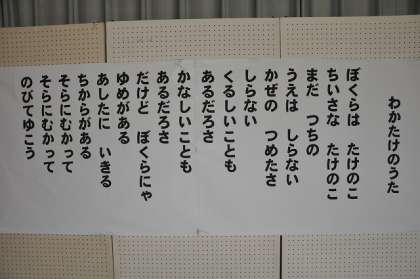 わかたけのうた
ぼくらは たけのこ
ちいさな たけのこ
まだ つちの
うえは しらない
かぜの つめたさ
しらない
くるしいことも
あるだろさ
かなしいことも
あるだろさ
だけど ぼくらにゃ
ゆめがある
あしたに いきる
ちからがある
そらにむかって
そらにむかって
のびてゆこう